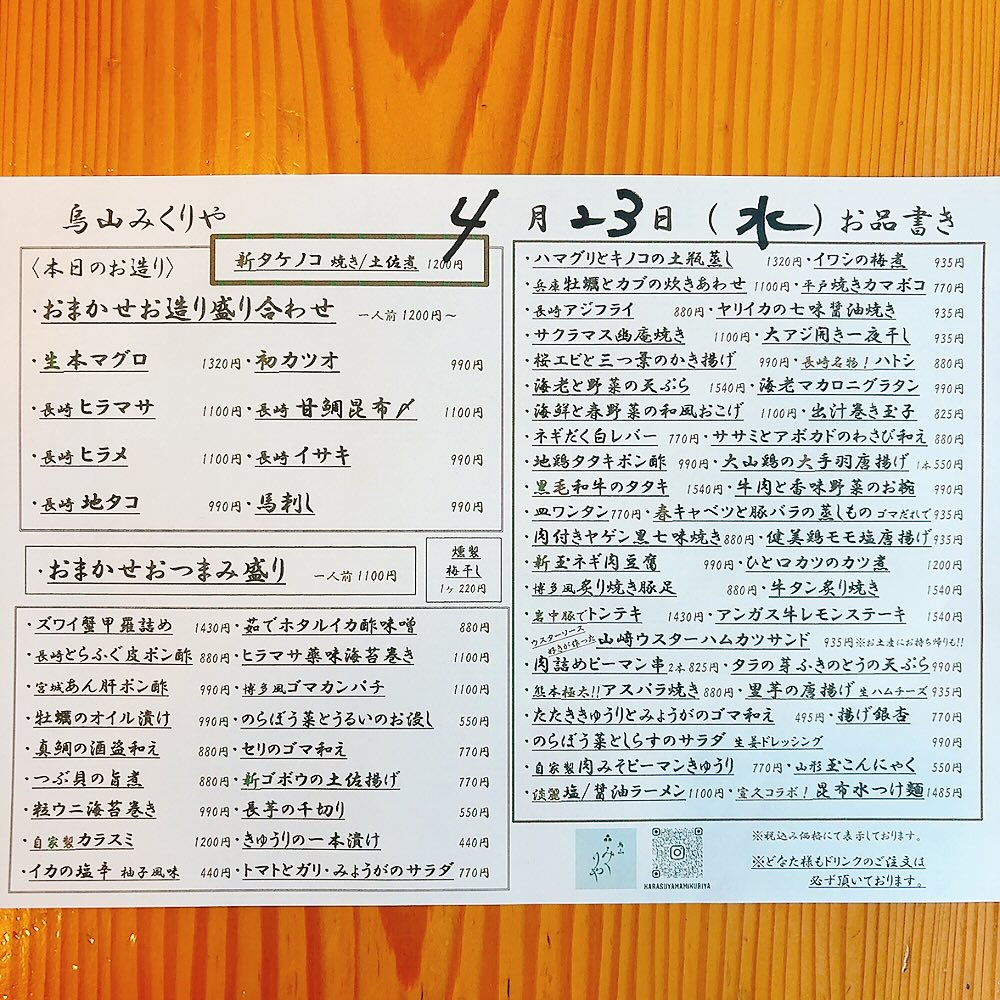 烏山みくりや
4月23日(水)お品書き
〈本日のお造り〉
新タケノコ 焼き/土佐煮 1200円
・おまかせお造り盛り合わせ 一人前1200円～
・生本マグロ 1320円・初カツオ 990円
・長崎 ヒラマサ 1100円・長崎 甘鯛昆布〆 1100円
・長崎 ヒラメ 1100円・長崎 イサキ 990円
・長崎 地タコ 990円・馬刺し 990円
・おまかせおつまみ盛り 一人前1100円
燻製
梅干し
1ヶ220円
・ズワイ蟹甲羅詰め 1430円・茹でホタルイカ酢味噌 880円
・長崎とらふぐ皮ポン酢 880円・ヒラマサ薬味海苔巻き 1100円
・宮城あん肝ポン酢 990円・博多風ゴマカンパチ 1100円
・牡蠣のオイル漬け 990円・のらぼう菜とうるいのお浸し 550円
・真鯛の酒盗和え 880円・セリのゴマ和え 770円
・つぶ貝の旨煮 880円・新ゴボウの土佐揚げ 770円
・粒ウニ海苔巻き 990円・長芋の千切り 550円
・自家製カラスミ 1200円・きゅうりの一本漬け 440円
・イカの塩辛 柚子風味 440円・トマトとガリ・みょうがのサラダ 770円
・ハマグリとキノコの土瓶蒸し 1320円・イワシの梅煮 935円
・兵庫牡蠣とカブの炊きあわせ 1100円・平戸焼きカマボコ 770円
・長崎アジフライ 880円・ヤリイカの七味醤油焼き 935円
・サクラマス幽庵焼き 1100円・大アジ開き一夜干し 935円
・桜エビと三つ景のかき揚げ 990円・長崎名物!ハトシ 880円
・海老と野菜の天ぷら 1540円・海老マカロニグラタン 990円
・海鮮と春野菜の和風おこげ 1100円・出汁巻き玉子 825円
・ネギだく白レバー 770円・ササミとアボカドのわさび和え 880円
・地鶏タタキポン酢 990円・大山鶏の大手羽唐揚げ 1本550円
・黒毛和牛のタタキ 1540円・牛肉と香味野菜のお椀 990円
・皿ワンタン 770円・春キャベツと豚バラの蒸しもの ゴマだれで 935円
・肉付きヤゲン黒七味焼き 880円・健美鶏モモ塩唐揚げ 935円
・新玉ネギ肉豆腐 990円・ひと口カツのカツ煮 1200円
・博多風炙り焼き豚足 880円・牛タン炙り焼き 1540円
・岩中豚でトンテキ 1430円・アンガス牛レモンステーキ 1540円
・ウスターソース好きが作った 山﨑ウスターハムカツサンド 935円※お土産にお持ち帰りも!!
・肉詰めピーマン串 2本825円・タラの芽ふきのとうの天ぷら 990円
・熊本極太!!アスパラ焼き 880円・里芋の唐揚げ 生ハムチーズ 935円
・たたききゅうりとみょうがのゴマ和え 495円・揚げ銀杏 770円
・のらぼう菜としらすのサラダ 生姜ドレッシング 990円
・自家製肉みそピーマンきゅうり 770円・山形玉こんにゃく 550円
・淡麗塩/醤油ラーメン 1100円・宣久コラボ!昆布水つけ麺 1485円
みくりや
HARASUYAMAMIKURIYA
※税込み価格にて表示しております。
※どなた様もドリンクのご注文は
必ず頂いております。